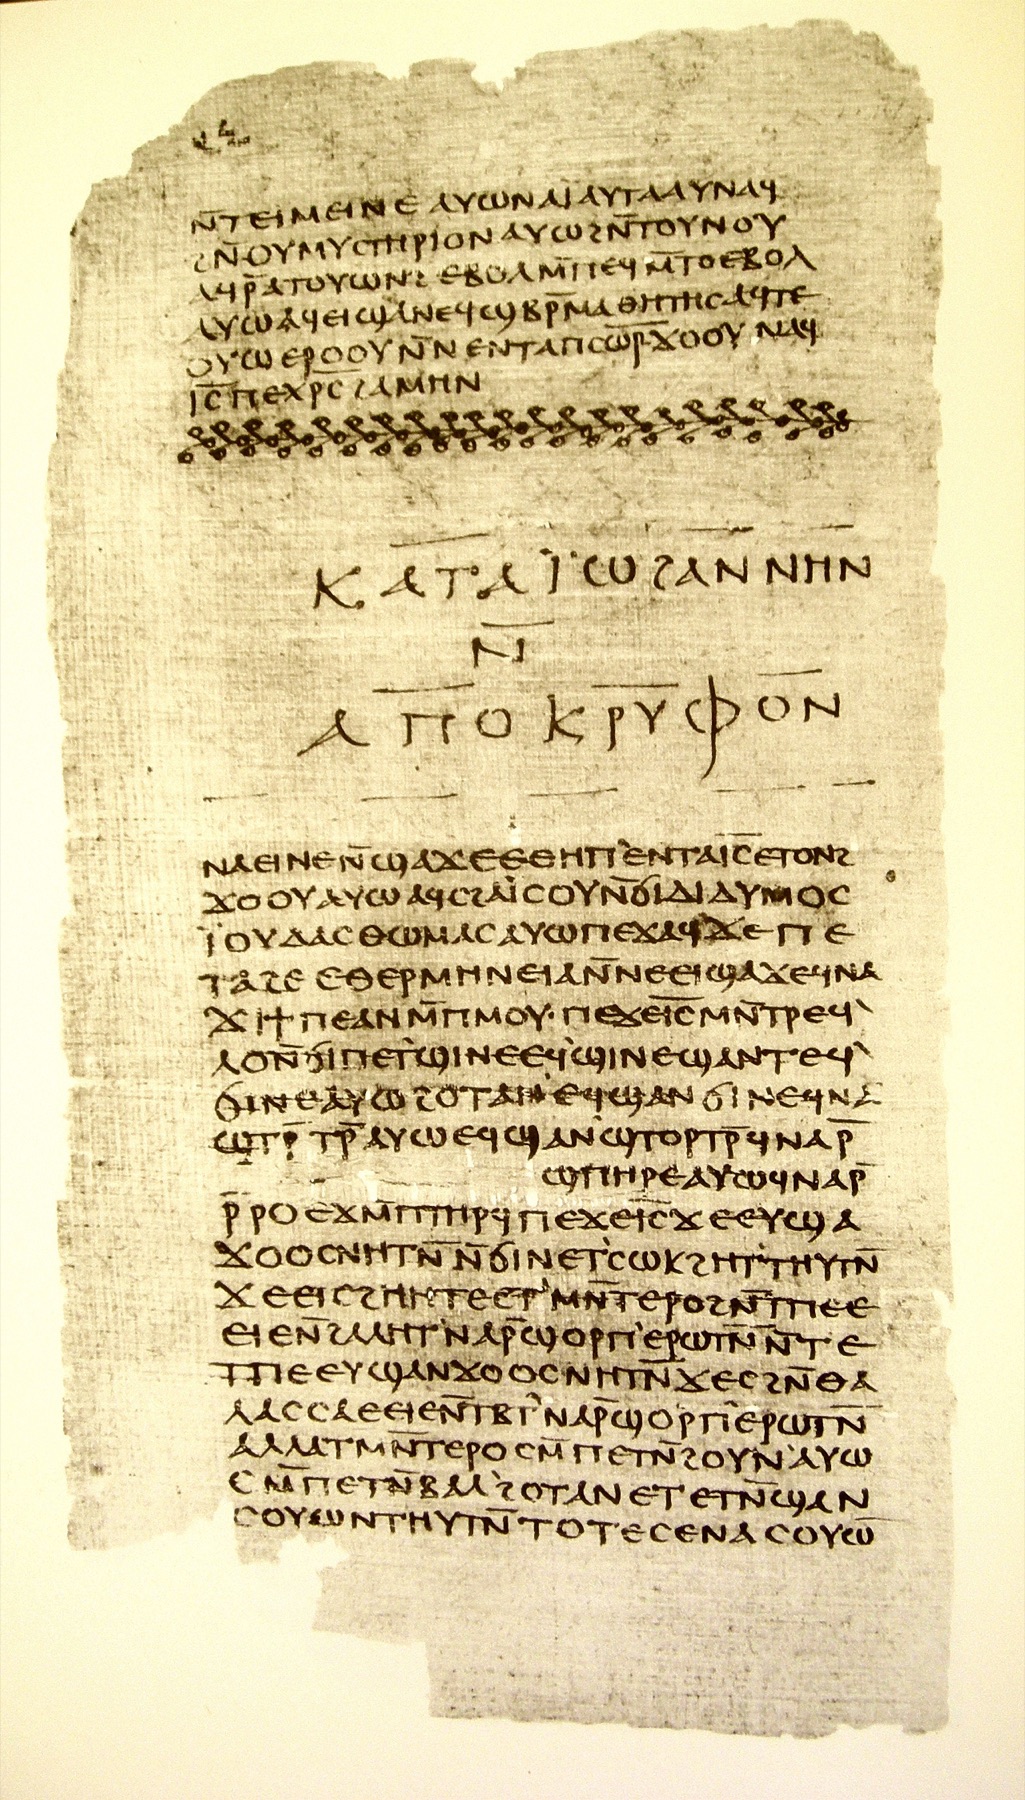 ⲛ̄ⲧⲉⲓⲙⲉⲓⲛⲉ ⲁⲩⲱ ⲛⲁⲓ̈ ⲁⲩⲧⲁⲁⲩ ⲛⲁϥ
ϩⲛ̄ⲟⲩⲙⲩⲥⲧⲏⲣⲓⲟⲛ ⲁⲩⲱ ϩⲛ̄ⲧⲟⲩⲛⲟⲩ
ⲁϥⲣ̄ⲁⲧⲟⲩⲱⲛϩ ⲉⲃⲟⲗ ⲙ̄ⲡⲉϥⲙ̄ⲧⲟ ⲉⲃⲟⲗ
ⲁⲩⲱ ⲁϥⲉⲓ ϣⲁⲛⲉϥϣⲃⲣ̄ⲙⲁⲑⲏⲧⲏⲥ ⲁϥⲧⲉ
ⲟⲩⲱ ⲉⲣⲟⲟⲩ ⲛ̄ⲛⲉⲛⲧⲁⲡⲥⲱ̄ⲣ̄ ϫⲟⲟⲩ ⲛⲁϥ
ⲓ̅ⲥ̅ ⲡⲉⲭⲣ̅ⲥ̅ ϩⲁⲙⲏⲛ
ⲕⲁⲧⲁ ⲓ̈ⲱϩⲁⲛⲛⲏⲛ
ⲛ̄ⲓ̄
ⲁⲡⲟⲕⲣⲩⲫⲟⲛ
ⲛⲁⲉⲓ ⲛⲉ ⲛ̄ϣⲁϫⲉ ⲉⲑⲏⲡ ⲉⲛⲧⲁⲓ̅ⲥ̅ ⲉⲧⲟⲛϩ
ϫⲟⲟⲩ ⲁⲩⲱ ⲁϥⲥϩⲁⲓ̈ⲥⲟⲩ ⲛ̄ϭⲓ ⲇⲓⲇⲩⲙⲟⲥ
ⲓ̈ⲟⲩⲇⲁⲥ ⲑⲱⲙⲁⲥ ⲁⲩⲱ ⲡⲉϫⲁϥ ϫⲉ ⲡⲉ
ⲧⲁϩⲉ ⲉⲑⲉⲣⲙⲏⲛⲉⲓⲁ ⲛ̄ⲛⲉⲉⲓϣⲁϫⲉ ϥⲛⲁ
ϫⲓ ϯⲡⲉ ⲁⲛ ⲙ̄ⲡⲙⲟⲩ· ⲡⲉϫⲉ ⲓ̅ⲥ̅ ⲙⲛ̄ⲧⲣⲉϥ
ⲗⲟ ⲛ̄ϭⲓ ⲡⲉⲧϣⲓⲛⲉ ⲉϥϣⲓⲛⲉ ϣⲁⲛⲧⲉϥ
ϭⲓⲛⲉ ⲁⲩⲱ ϩⲟⲧⲁⲛ ⲉϥϣⲁⲛϭⲓⲛⲉ ϥⲛⲁ
ϣⲧⲣ̄ⲧⲣ̄ ⲁⲩⲱ ⲉϥϣⲁⲛϣⲧⲟⲣⲧⲣ̄ ϥⲛⲁⲣ̄
ϣⲡⲏⲣⲉ ⲁⲩⲱ ϥⲛⲁⲣ̄
ⲣ̄ⲣⲟ ⲉϫⲙ̄ ⲡⲧⲏⲣϥ ⲡⲉϫⲉ ⲓ̅ⲥ̅ ϫⲉ ⲉⲩϣⲁ
ϫⲟⲟⲥ ⲛⲏⲧⲛ̄ ⲛ̄ϭⲓ ⲛⲉⲧⲥⲱⲕ ϩⲏⲧ ⲧⲏⲩⲧⲛ̄
ϫⲉ ⲉⲓⲥϩⲏⲏⲧⲉ ⲉⲧⲙⲛ̄ⲧⲉⲣⲟ ϩⲛ̄ ⲧⲡⲉ ⲉ
ⲉⲓⲉ ⲛ̄ϩⲁⲗⲏⲧ ⲛⲁⲣ̄ ϣⲟⲣⲡ ⲉⲣⲱⲧⲛ̄ ⲛ̄ⲧⲉ
ⲧⲡⲉ ⲉⲩϣⲁⲛϫⲟⲟⲥ ⲛⲏⲧⲛ̄ ϫⲉ ⲥϩⲛ̄ ⲑⲁ
ⲗⲁⲥⲥⲁ ⲉⲉⲓⲉ ⲛ̄ⲧⲃⲧ ⲛⲁⲣ̄ ϣⲟⲣⲡ ⲉⲣⲱⲧⲛ̄
ⲁⲗⲗⲁ ⲧⲙⲛ̄ⲧⲉⲣⲟ ⲥⲙ̄ⲡⲉⲧⲛ̄ϩⲟⲩⲛ ⲁⲩⲱ
ⲥⲙ̄ⲡⲉⲧⲛ̄ⲃⲁⲗ ϩⲟⲧⲁⲛ ⲉⲧⲉⲧⲛ̄ϣⲁⲛ
ⲥⲟⲩⲱⲛ ⲧⲏⲩⲧⲛ̄ ⲧⲟⲧⲉ ⲥⲉⲛⲁⲥⲟⲩⲱ